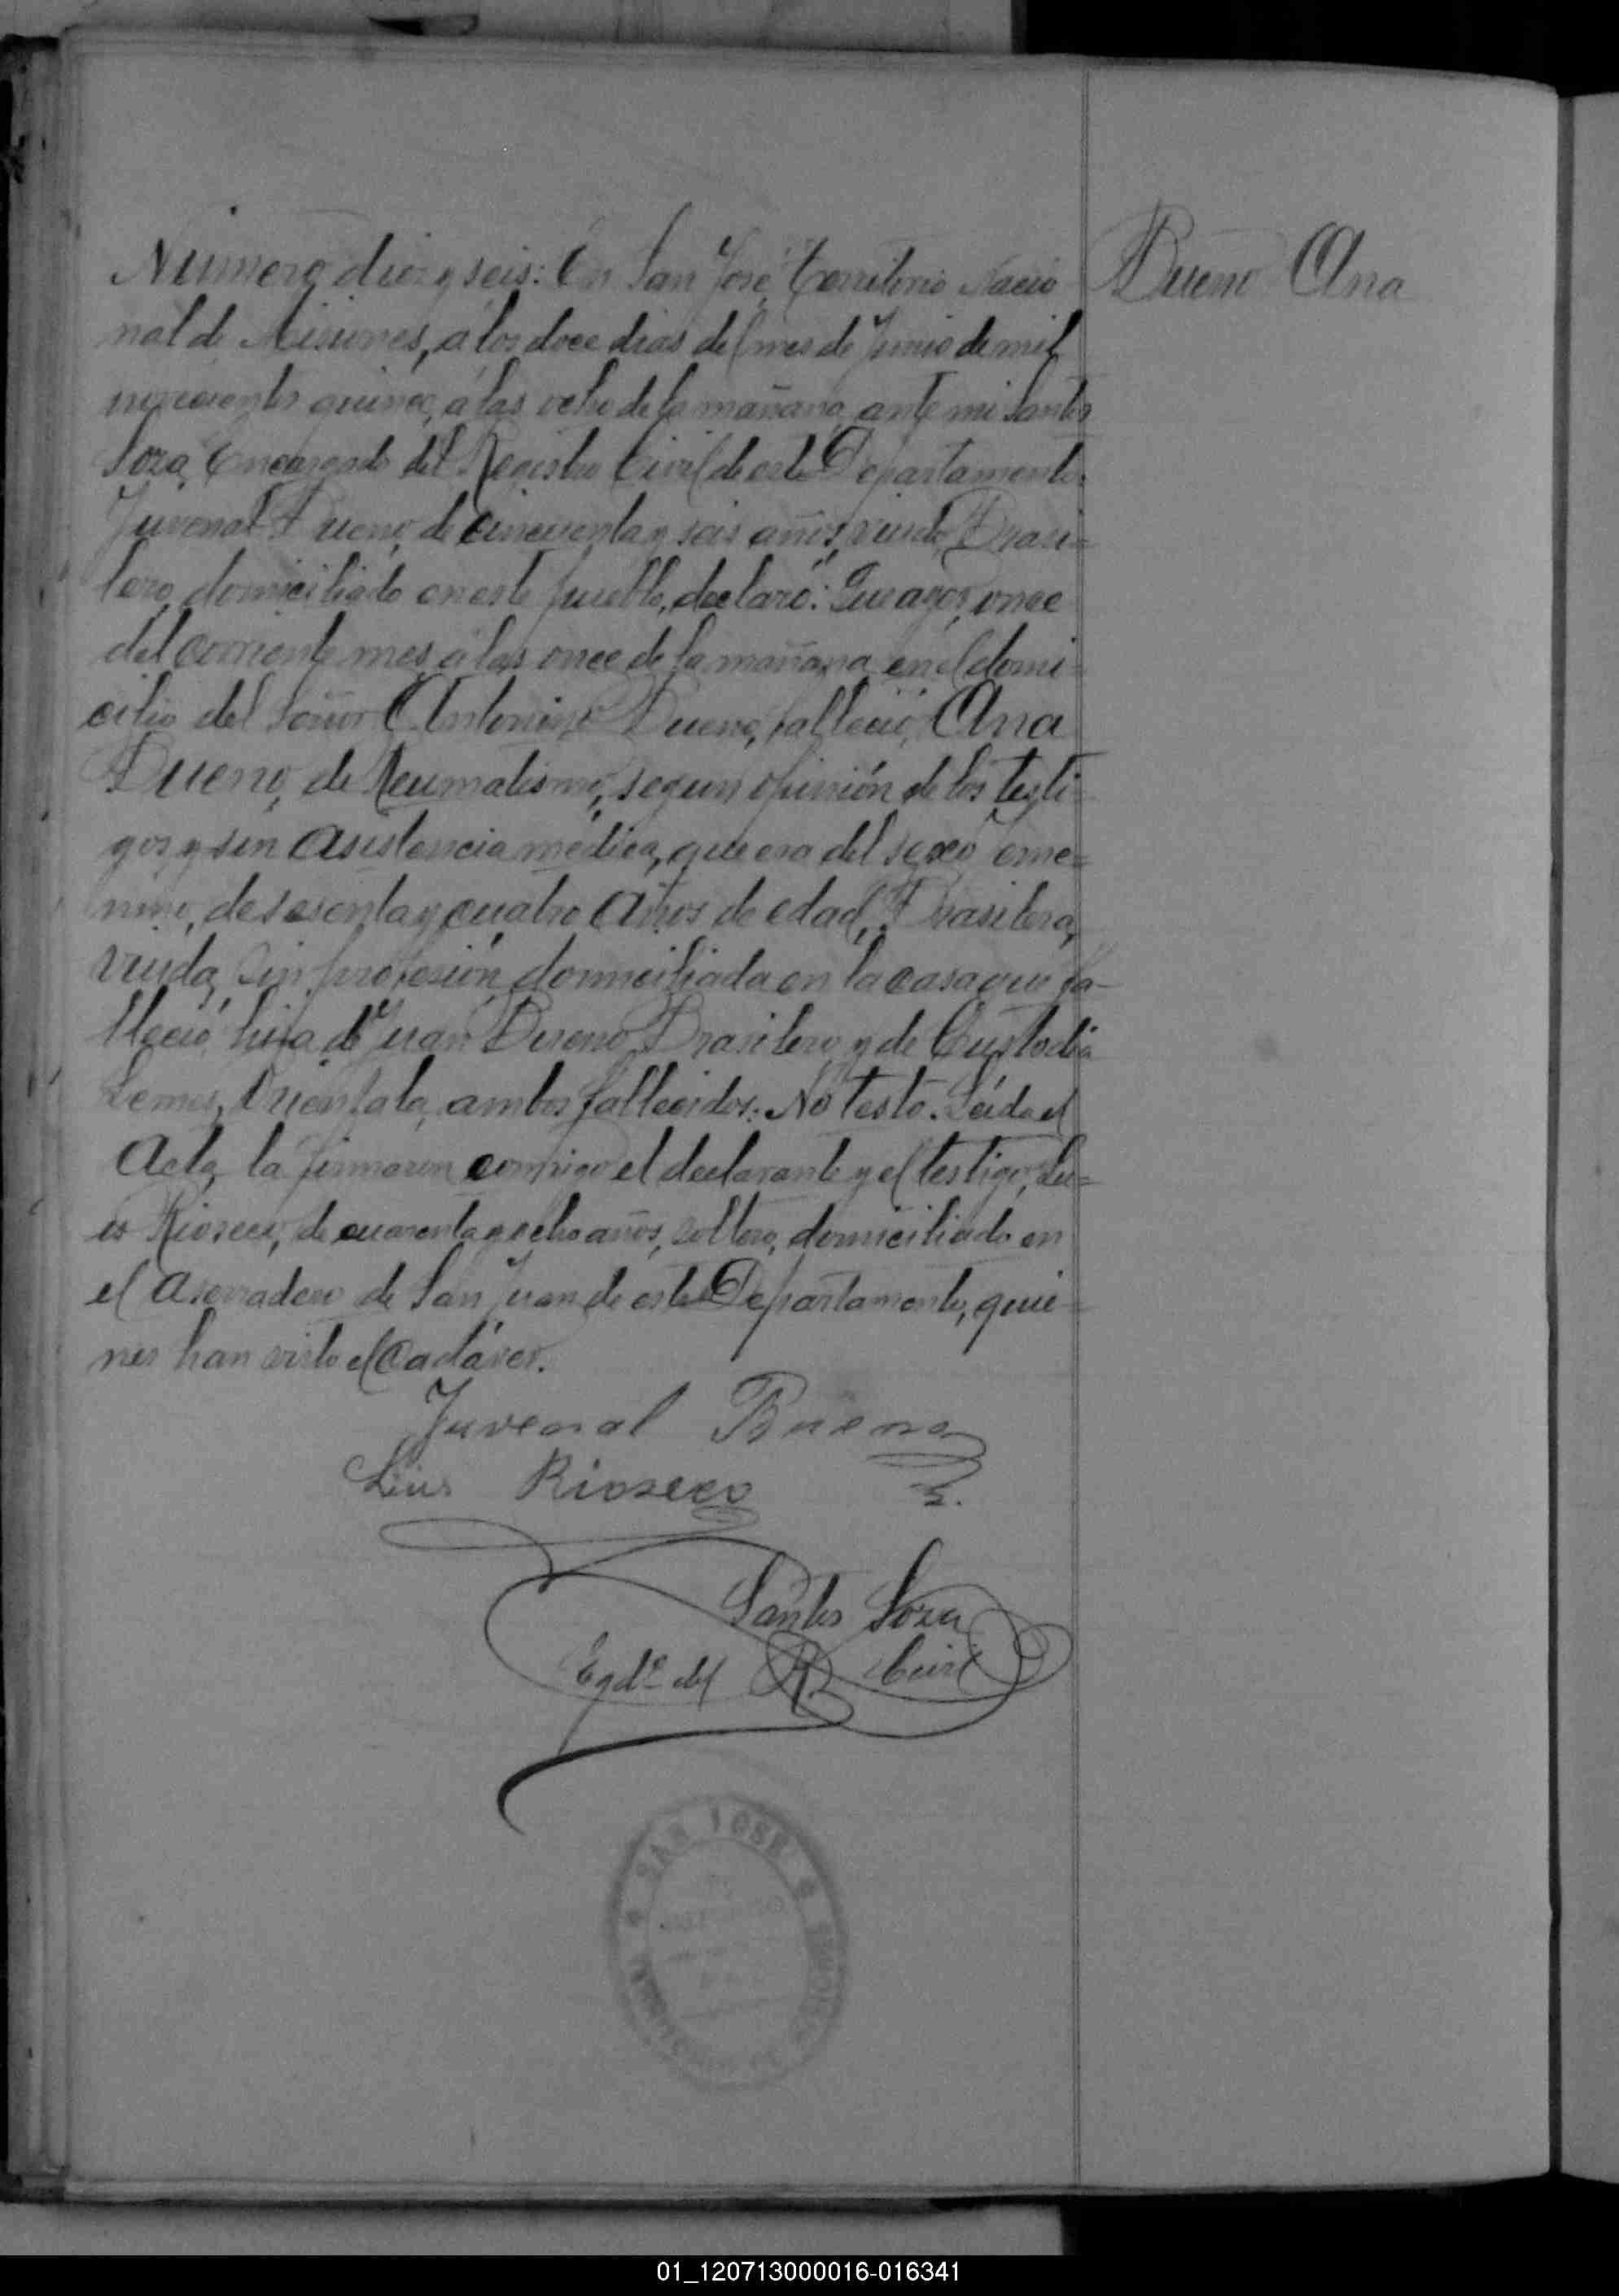 Número diez y seis: En San José, Territorio Nacio
nal de Misiones, á los doce dias del mes de Junio de mil
novecientos quince, á las ocho de la mañana, ante mi Santos
Soza, Encargado del Registro Civil de este Departamento.
Juvenal Bueno, de cincuenta y seis años, viudo, Brasi=
lero, domiciliado en este pueblo, declaró: Que ayer, once
del corriente mes, á las once de la mañana en el domi=
cilio del Señor Antonino Bueno, falleció, Ana
Bueno, de Reumatismo, segun opinión de los testi=
gos y sin asistencia médica, que era del sexo feme=
nino, de sesenta y cuatro años de edad, Brasilera,
viuda, sin profesión, domiciliada en la casa que fa-
lleció, hija de Juan Bueno, Brasilero y de Custodia
Lemes, Orientala, ambos fallecidos: No testó. Leida el
Acta, la firmaron conmigo el declarante y el testigo, Lu=
is Rioseco, de cuarenta y ocho años, soltero, domiciliado en
el Aserradero de San Juan de este Departamento, quie=
nes han visto el Cadáver.
Juvenal Bueno
Luis Rioseco
Santos Soza
Egdo del R. Civil
SAN JOSE
Bueno Ana
01_120713000016-016341